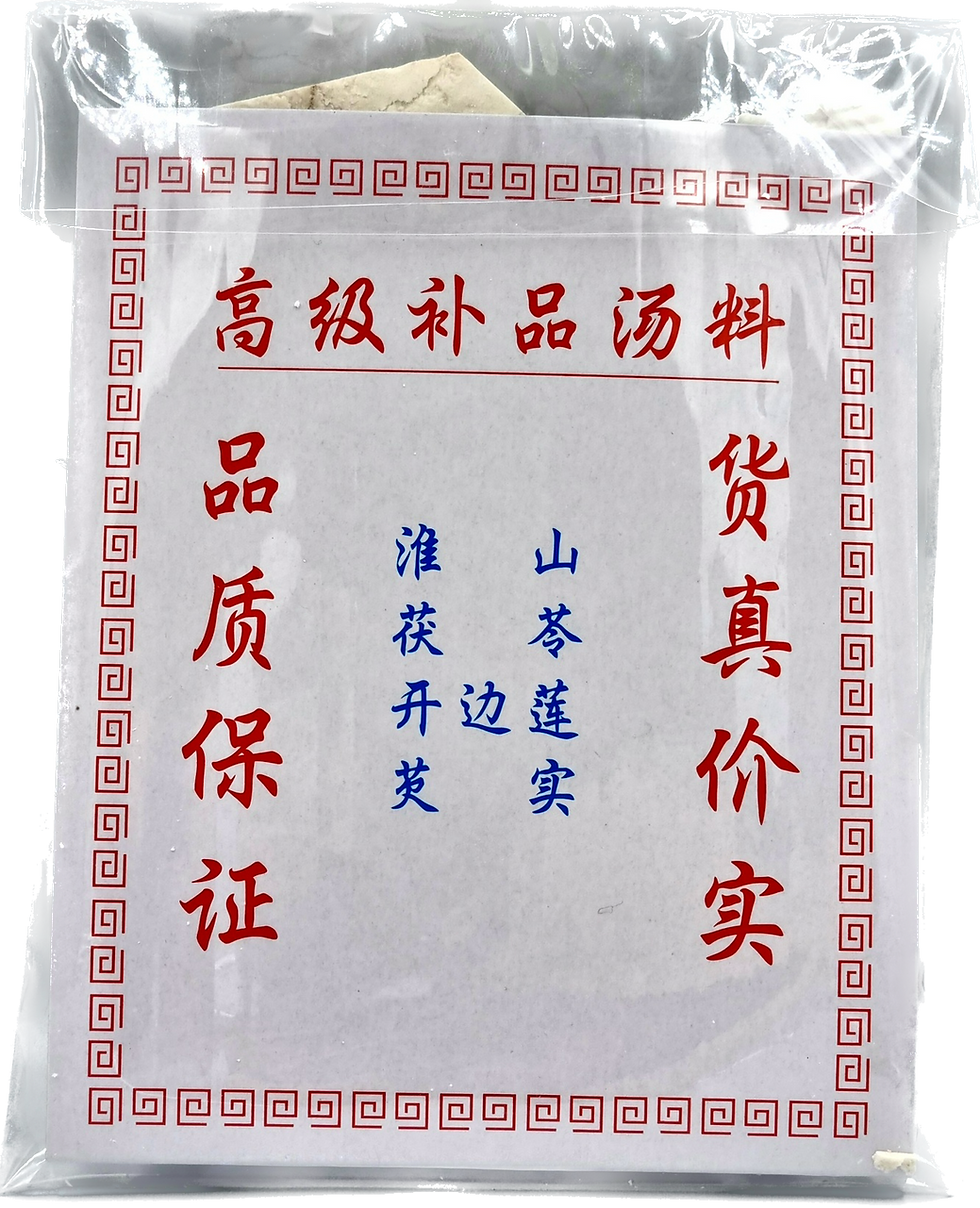 高级补品汤料
品质保证
淮山
茯苓
开边莲
芡实
货真价实